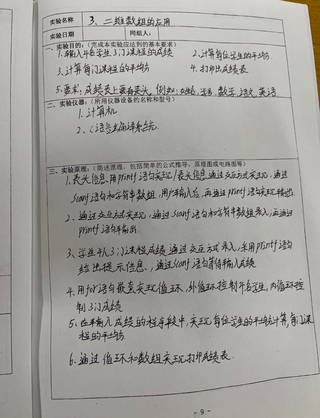 实验名称 3.二维数组的应用
实验日期 同组人：
一、实验目的：（完成本实验应达到的基本要求）
1.输入 名学生3门课程的成绩 2.计算每位学生的平均分
3.计算每门课程的平均分 4.打印出成绩表
5.要求，成绩表上要有表头，例如： 姓名，数学，语文，英语
二、实验仪器：（所用仪器设备的名称和型号）
1.计算机
2.C语言 系统.
三、实验原理：（简述原理，包括简单的公式推导，原理图或电路图等）
1.表头信息用printf语句实现/表头信息通过交互方式实现，通过
scanf语句和字符串数组，用户来输入后，再通过printf语句实现输出
2、通过交互方式实现，通过scanf语句和字符串数组录入，再通过
printf语句来输出.
3、学生个人3门课程成绩通过交互方式录入，采用printf语句
给出提示信息，通过scanf语句等待输入成绩
4.用for语句嵌套实现循环，外循环控制 名学生，内循环控
制3门成绩
5.在来输入成绩的程序段中，实现每位学生的平均分计算，每门课
程的平均分
6.通过循环和数组实现打印成绩表.
- 9 -